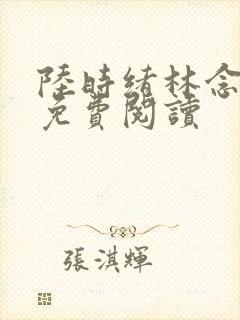 陸時緒林念
免費閱讀
張淇輝